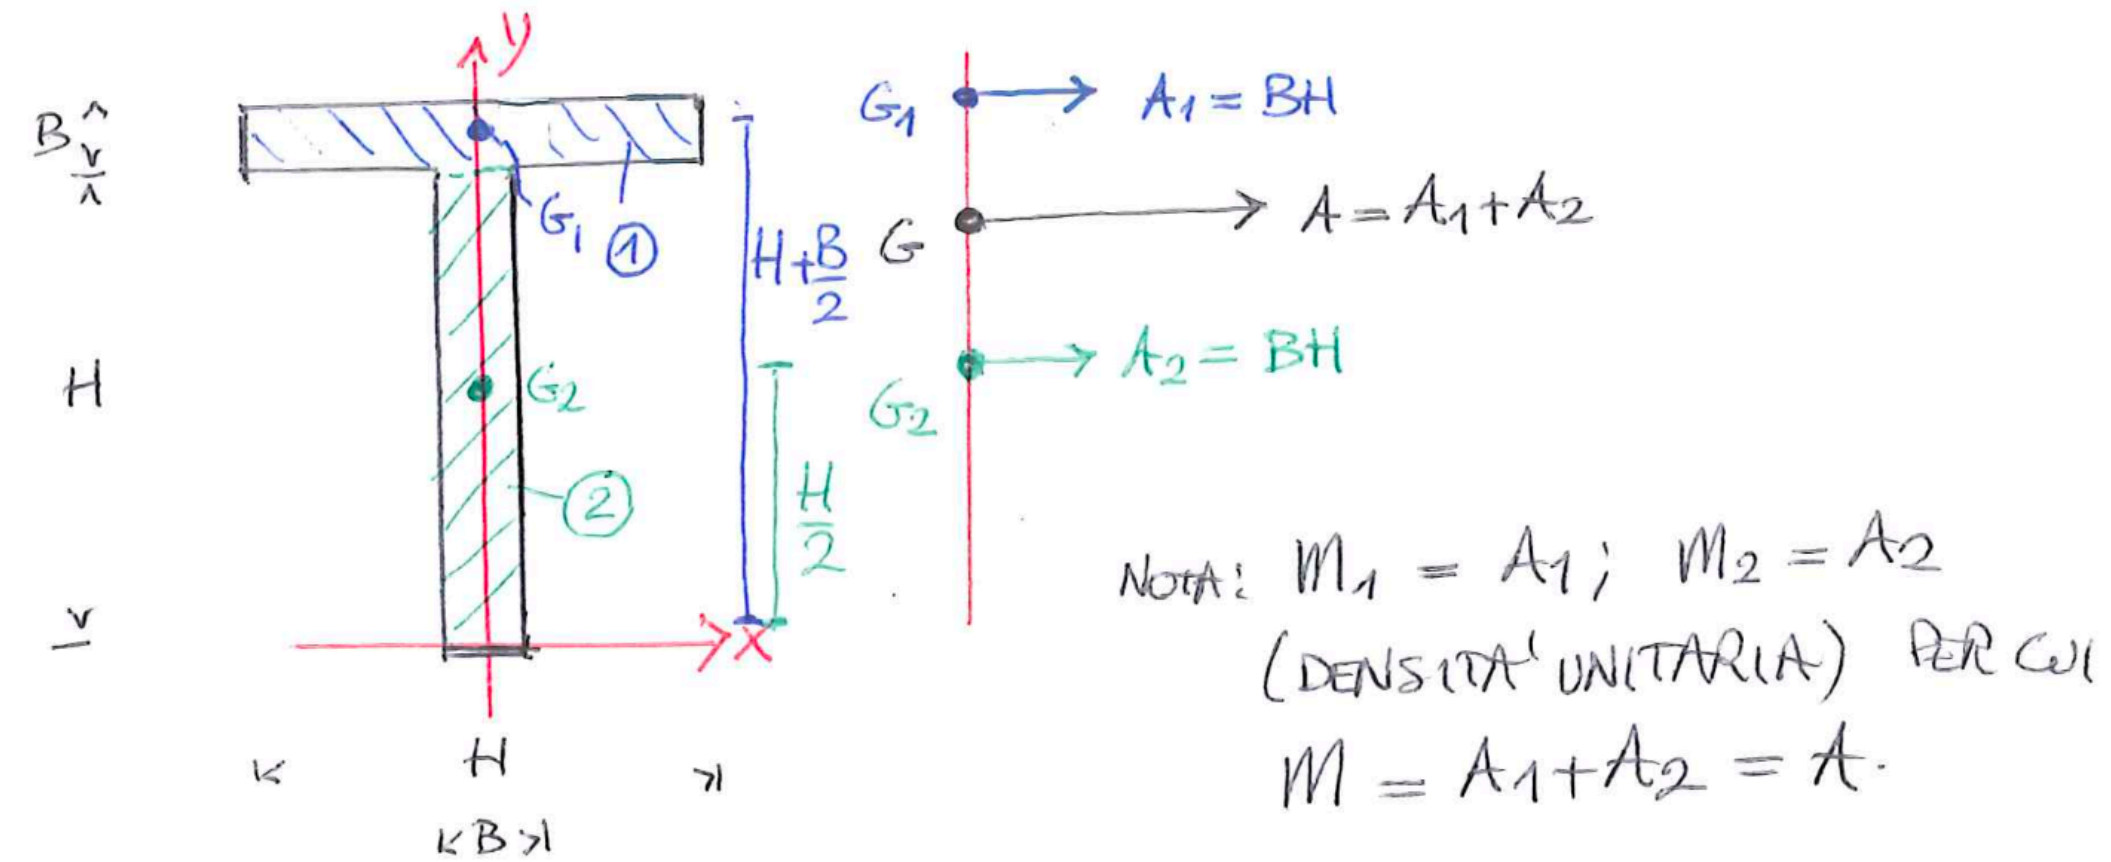 y
B
G₁
①
H+B/2
H
G₂
②
H/2
x
H
B
G₁
A₁ = BH
G
A = A₁+A₂
G₂
A₂ = BH
NOTA: M₁ = A₁; M₂ = A₂
(DENSITA' UNITARIA) PER CUI
M = A₁+A₂ = A.